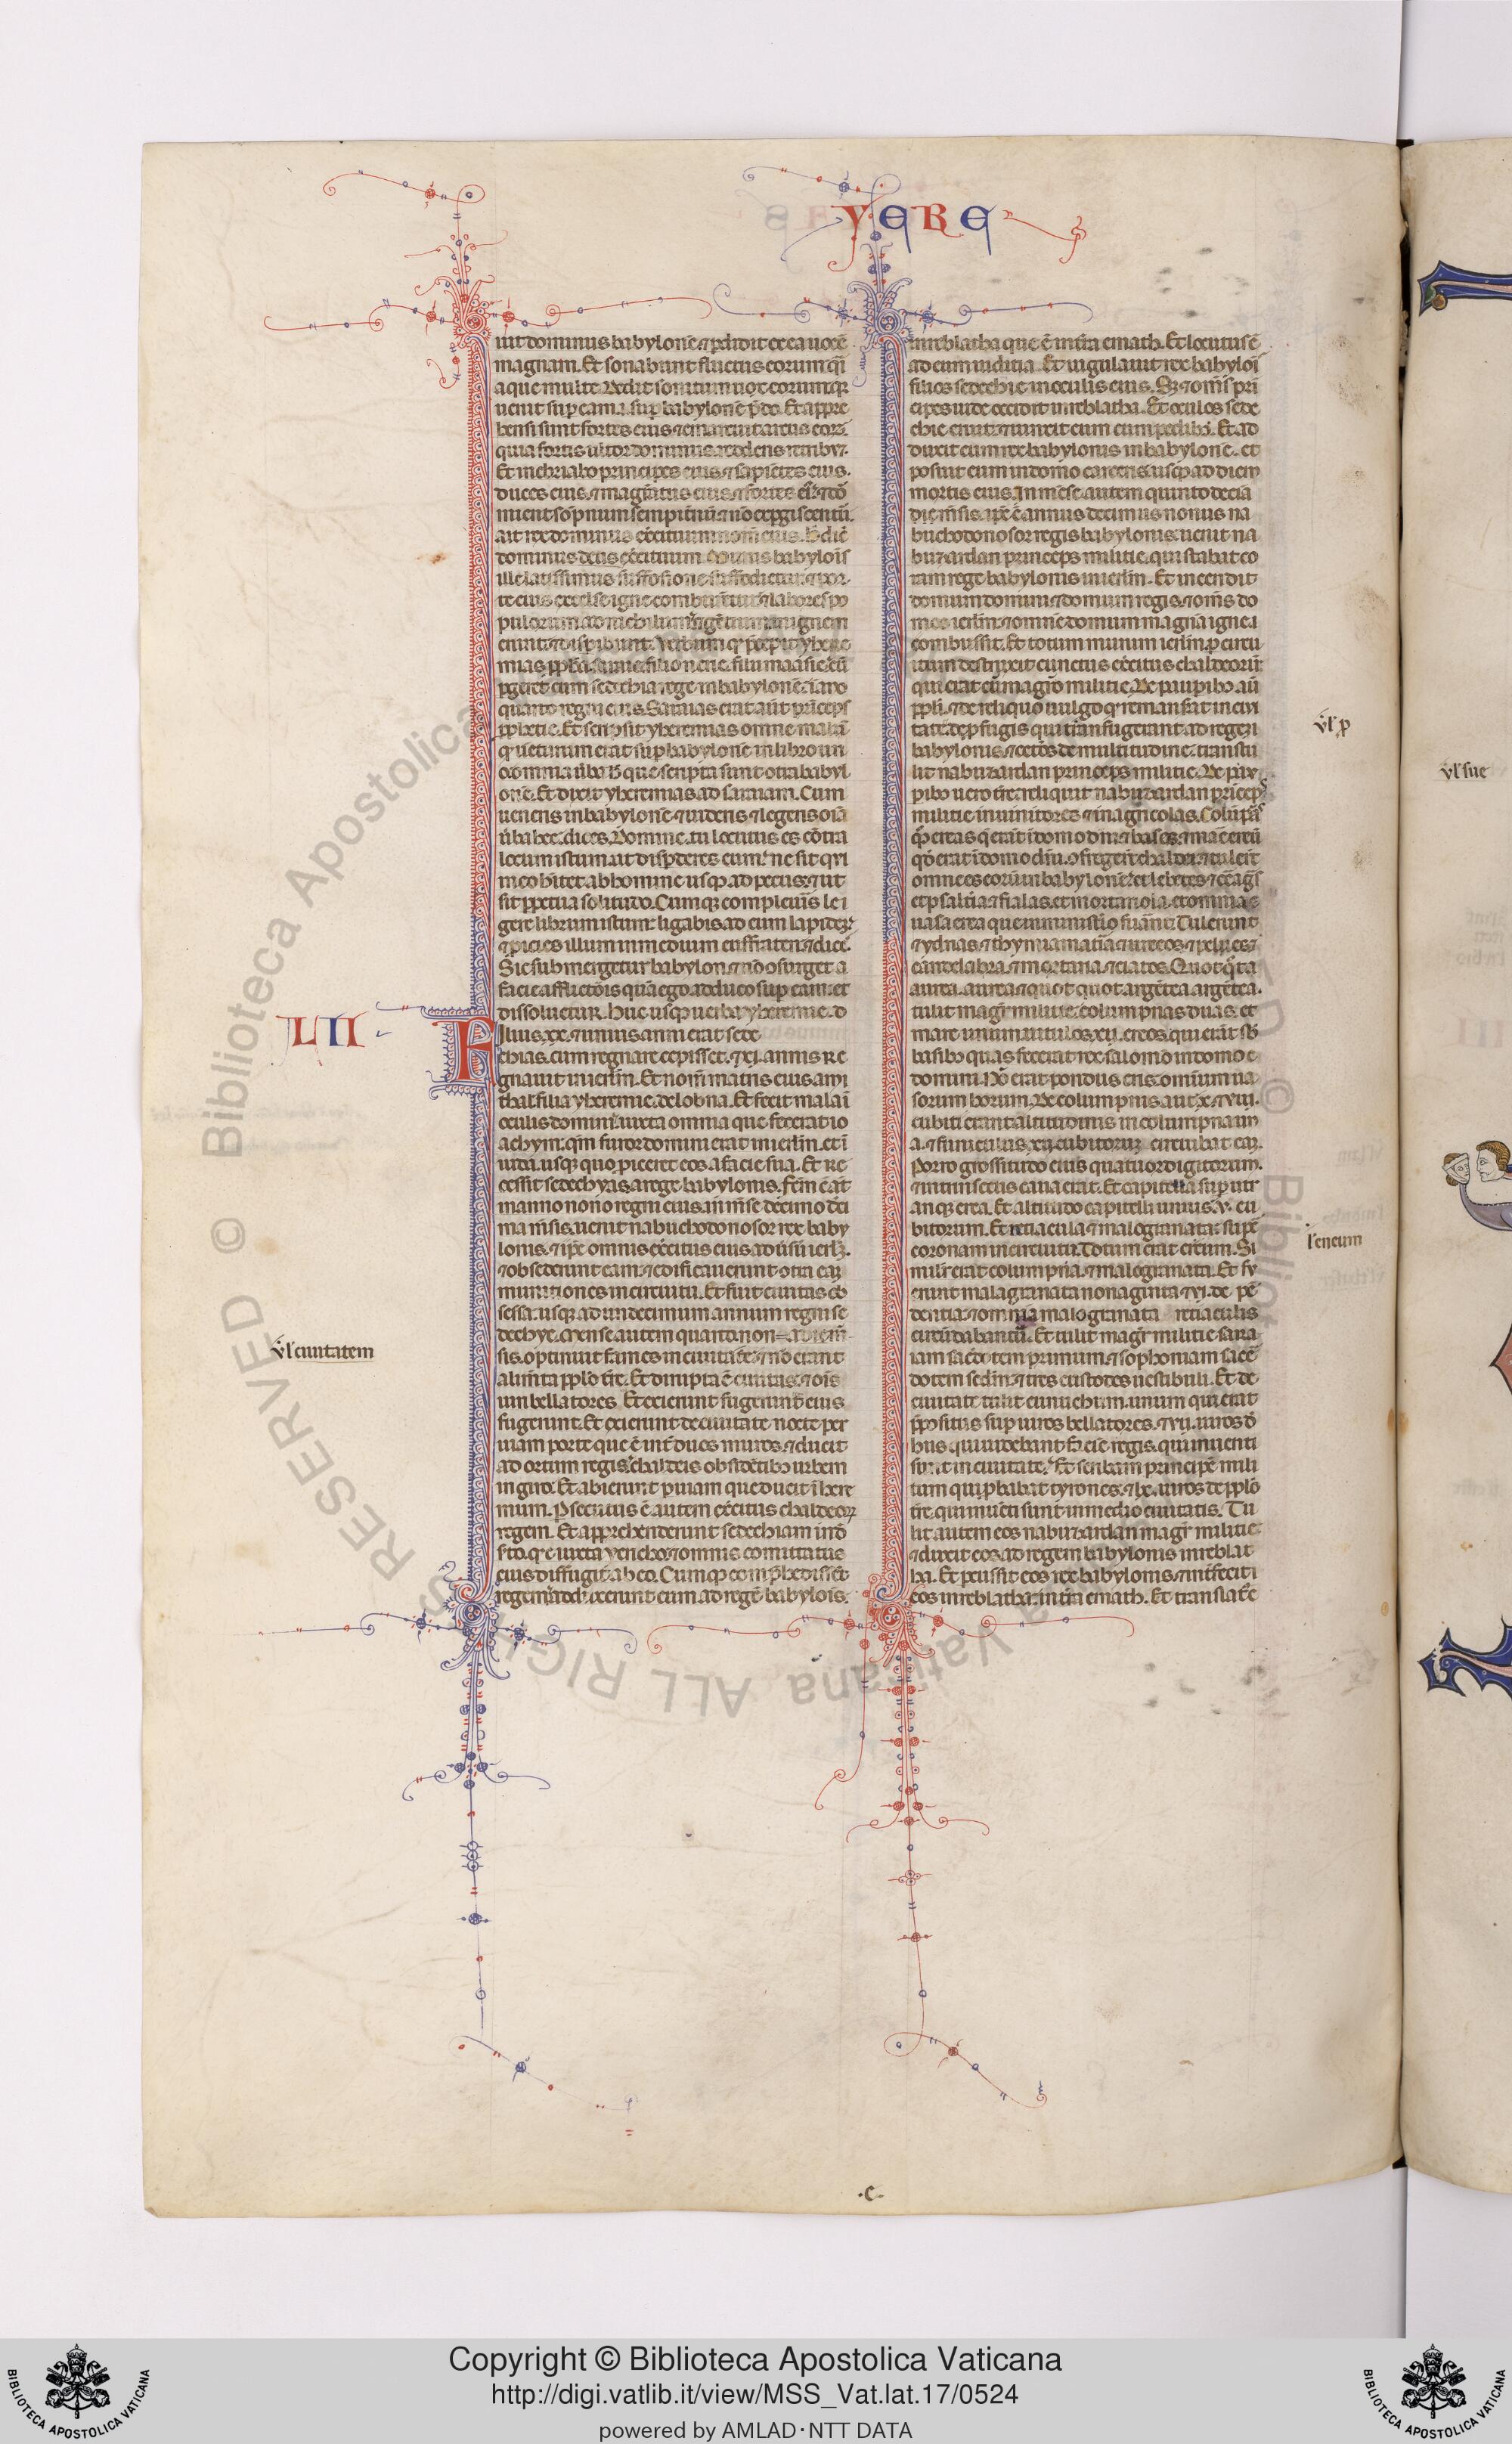 YERE
uit dominus babylonē ⁊ perdidit ex ea uocē
magnam. Et sonabunt fluctus eorum q̄i
aque multe. Dedit sonitum uox eorum. q̄
uenit sup eam .i. sup babylonē p̄do. Et appre
hensi sunt fortes eius ⁊ emarcuit arcus eorū.
quia fortis ultor dominus reddens
Et inebriabo principes eius. ⁊ sapiētes eius.
duces eius. ⁊ magr̄atus eius. ⁊ fortes
mient sopnum sempit̄nū. ⁊ nō expgiscentur.
ait rex dominus exercituum nom̄ eius. dic̄
dominus deus exercituum. babylois
ille latissimus suffosione suffodietur. ⁊ por
te eius excelse igne comburentur. ⁊ labores po
pulorum ad nichilum
erunt ⁊ disperibunt. Verbum q̄ p̄cepit yhere
mias ppha filio nerie. filii maasie. cū
pgeret cum sedechia rege in babylonē. ī an̄o
quarto regni eius. Saraias erat aūt prīceps
pphetie. Et scripsit yheremias omne malū
q̄ uenturum erat sup babylonē in libro un
o. omnia ūba que scripta sunt ⁊tra babyl
onē. Et dixit yheremias ad saraiam. Cum
ueneris in babylonē ⁊ uideris ⁊ legeris oīa
ūba hec. dices. Domine. tu locutus es cōtra
locum istum. ut dispderes eum. ne sit qui
in eo hītet ab homine usq ad pecus. ⁊ ut
sit ppetua solitudo. Cumq compleueris le
gere librum istum. ligabis ad eum lapidē.
⁊ proicies illum in medium euffraten. ⁊ dices.
Sic submergetur babylon. ⁊ nō ⁊surget a
facie afflictōis quā ego adduco sup eam. et
dissoluetur. Huc usq uerba yheremie.
LII
Filius .xx. ⁊ unius anni erat sede
chias. cum regnare cepisset. ⁊ xi. annis re
gnauit in ierlm̄. Et nom̄ matris eius ami
thal. filia yheremie. de lobna. Et fecit malū ī
oculis domini. iuxta omnia que fecerat io
achym. qm̄ furor domini erat in ierlm̄. et ī
iuda. usq quo piceret eos a facie sua. Et re
cessit sedechyas a rege babylonis. Fcm̄ ē aūt
in anno nono regni eius. in m̄se decimo deci
ma m̄sis. uenit nabuchodonosor rex baby
lonis. ⁊ ip̄e ⁊ omnis exercitus eius
⁊ obsederunt eam. ⁊ edificauerunt ⁊tra eam
munitiones in circuitu. Et fuit ciuitas ob
sessa. usq ad undecimum annum regni se
dechye. Mense autem quarto. nona
sis. optinuit fames in ciuitatē. ⁊ nō erant
ūl ciuitatem
alim̄ta pplo tr̄e. Et dirupta ē ciuitas. ⁊ oīs
uiri bellatores. Et exierunt fugerunt eius
fugerunt. Et exierunt de ciuitate nocte per
uiam porte que ē int̄ duos muros. ⁊ ducit
ad ortum regis. chaldeis obsidētib urbem
in giro. Et abierunt p uiam que ducit ī here
mum. Psecutus ē autem exercitus chaldeoꝝ
regem. Et apprehenderunt sedechiam in
q̄ ē iuxta yericho. ⁊ omnis comitatus
eius diffugit ab eo. Cumq comp̄hēdissēt
regem adduxerunt eum ad regē babylois.
in reblatha que ē in tr̄a emath. Et locutus ē
ad eum iudicia. Et iugulauit rex babylois
filios sedechie in oculis eius. S⁊ ⁊ om̄is pri
cipes iude occidit in reblatha. Et oculos sede
chie eruit. ⁊ uinxit eum cum pedib. Et ad
duxit eum rex babylonis in babylonē. et
posuit eum in domo carceris usq ad diem
mortis eius. In m̄se autem quinto decia
die m̄sis. ip̄e ē annus decimus nonus na
buchodonosor regis babylonis. uenit na
buzardan princeps militie. qui stabat co
ram rege babylonis in ierlm̄. Et incendit
domum domini. ⁊ domum regis. ⁊ om̄s do
mos ierlm̄. ⁊ omnē domum magnā igne ī
combussit. Et totum murum ierlm̄ p circu
itum destruxit cunctus exercitus chaldeorū
qui erat cū magr̄o militie. De paupib aūt
ppli. ⁊ de reliquo uulgo q̄ remanserat in ciui
tate. ⁊ de p̄fugis qui trānsfugerant ad regem
ūl p
babylonis. ⁊ cet̄os de multitudine. transtu
lit nabuzardan princeps militie. De pau
pib uero tr̄e. reliquit nabuzardan princeps
militie in uinitores ⁊ in agricolas. Colūpnas
q̄ ereas q̄ erāt ī domo dn̄i ⁊ bases. ⁊ mare ereū
qd̄ erat ī domo dn̄i. ⁊fregerūt chaldei. ⁊ tulerūt
omne es eorū in babylonē. et lebetes. ⁊ creagras
et psalt̄ia ⁊ fialas. et mortariola. et omnia
uasa erea que in ministerio fuerant. Tulerunt
⁊ ydrias. ⁊ thymiamatīa. ⁊ urceos. ⁊ pelues. ⁊
candelabra. ⁊ mortaria. ⁊ ciatos. Quotq̄t a
aurea. aurea. ⁊ quot quot argētea argētea.
tulit magr̄ militie. columpnas duas. et
mare unum. uitulos .xii. ereos. qui erāt sb̄
basib quas fecerat rex salomō in domo
domini. Nō erat pondus eris. omnium ua
sorum horum. De columpnis aūt .x. ⁊ viii.
cubiti erant altitudinis in columpna un
a. ⁊ funiculus .xii. cubitorum circuibat eam.
Porro grossitudo eius quatuor digitorum.
⁊ intrinsecus caua erat. Et capitella sup utr
anq̄ erea. Et altitudo capitelli unius .v. cu
bitorum. Et retiacula ⁊ malogranata sup
coronam in circuitu. Totum erat ereum. Si
l' eneum
milit̄ erat columpna. ⁊ malogranata. Et fu
erunt malagranata nonaginta ⁊ vi. de pē
dentia. ⁊ omnia malogranata retiaculis
circūdabantur. Et tulit magr̄ militie sara
iam sac̄dotem primum. ⁊ sophoniam sac̄
dotem scdm̄. ⁊ tres custodes uestibuli. Et de
ciuitate tulit eunuchum. unum qui erat
p̄positus sup uiros bellatores. ⁊ vii. uiros d̄
hiis. qui uidebant faciē regis. qui inuenti
sunt in ciuitate. Et scribam principē mili
tum qui p̄babat tyrones. ⁊ lx. uiros de pplo
tr̄e. qui inuēti sunt in medio ciuitatis. Tu
lit autem eos nabuzardan magr̄ militie
⁊ duxit eos ad regem babylonis in reblat
ha. Et percussit eos rex babylonis. ⁊ int̄fecit
eos in reblatha. in tr̄a emath. Et translatꝰ ē
ūl sue
.c.
Copyright © Biblioteca Apostolica Vaticana
http://digi.vatlib.it/view/MSS_Vat.lat.17/0524
powered by AMLAD·NTT DATA
BIBLIOTECA APOSTOLICA VATICANA
BIBLIOTECA APOSTOLICA VATICANA
© Biblioteca Apostolica Vaticana ALL RIGHTS RESERVED